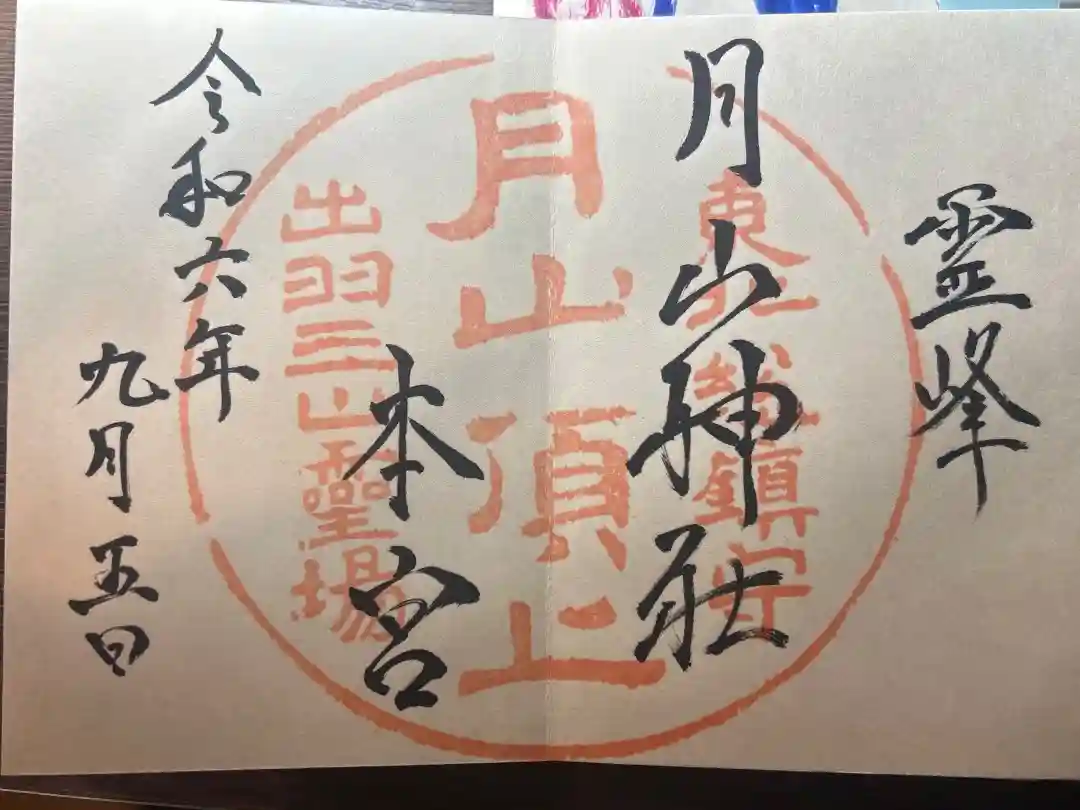 霊峰
月山神社
本宮
令和六年
九月五日
東北総鎮守
月山頂上
出羽三山霊場